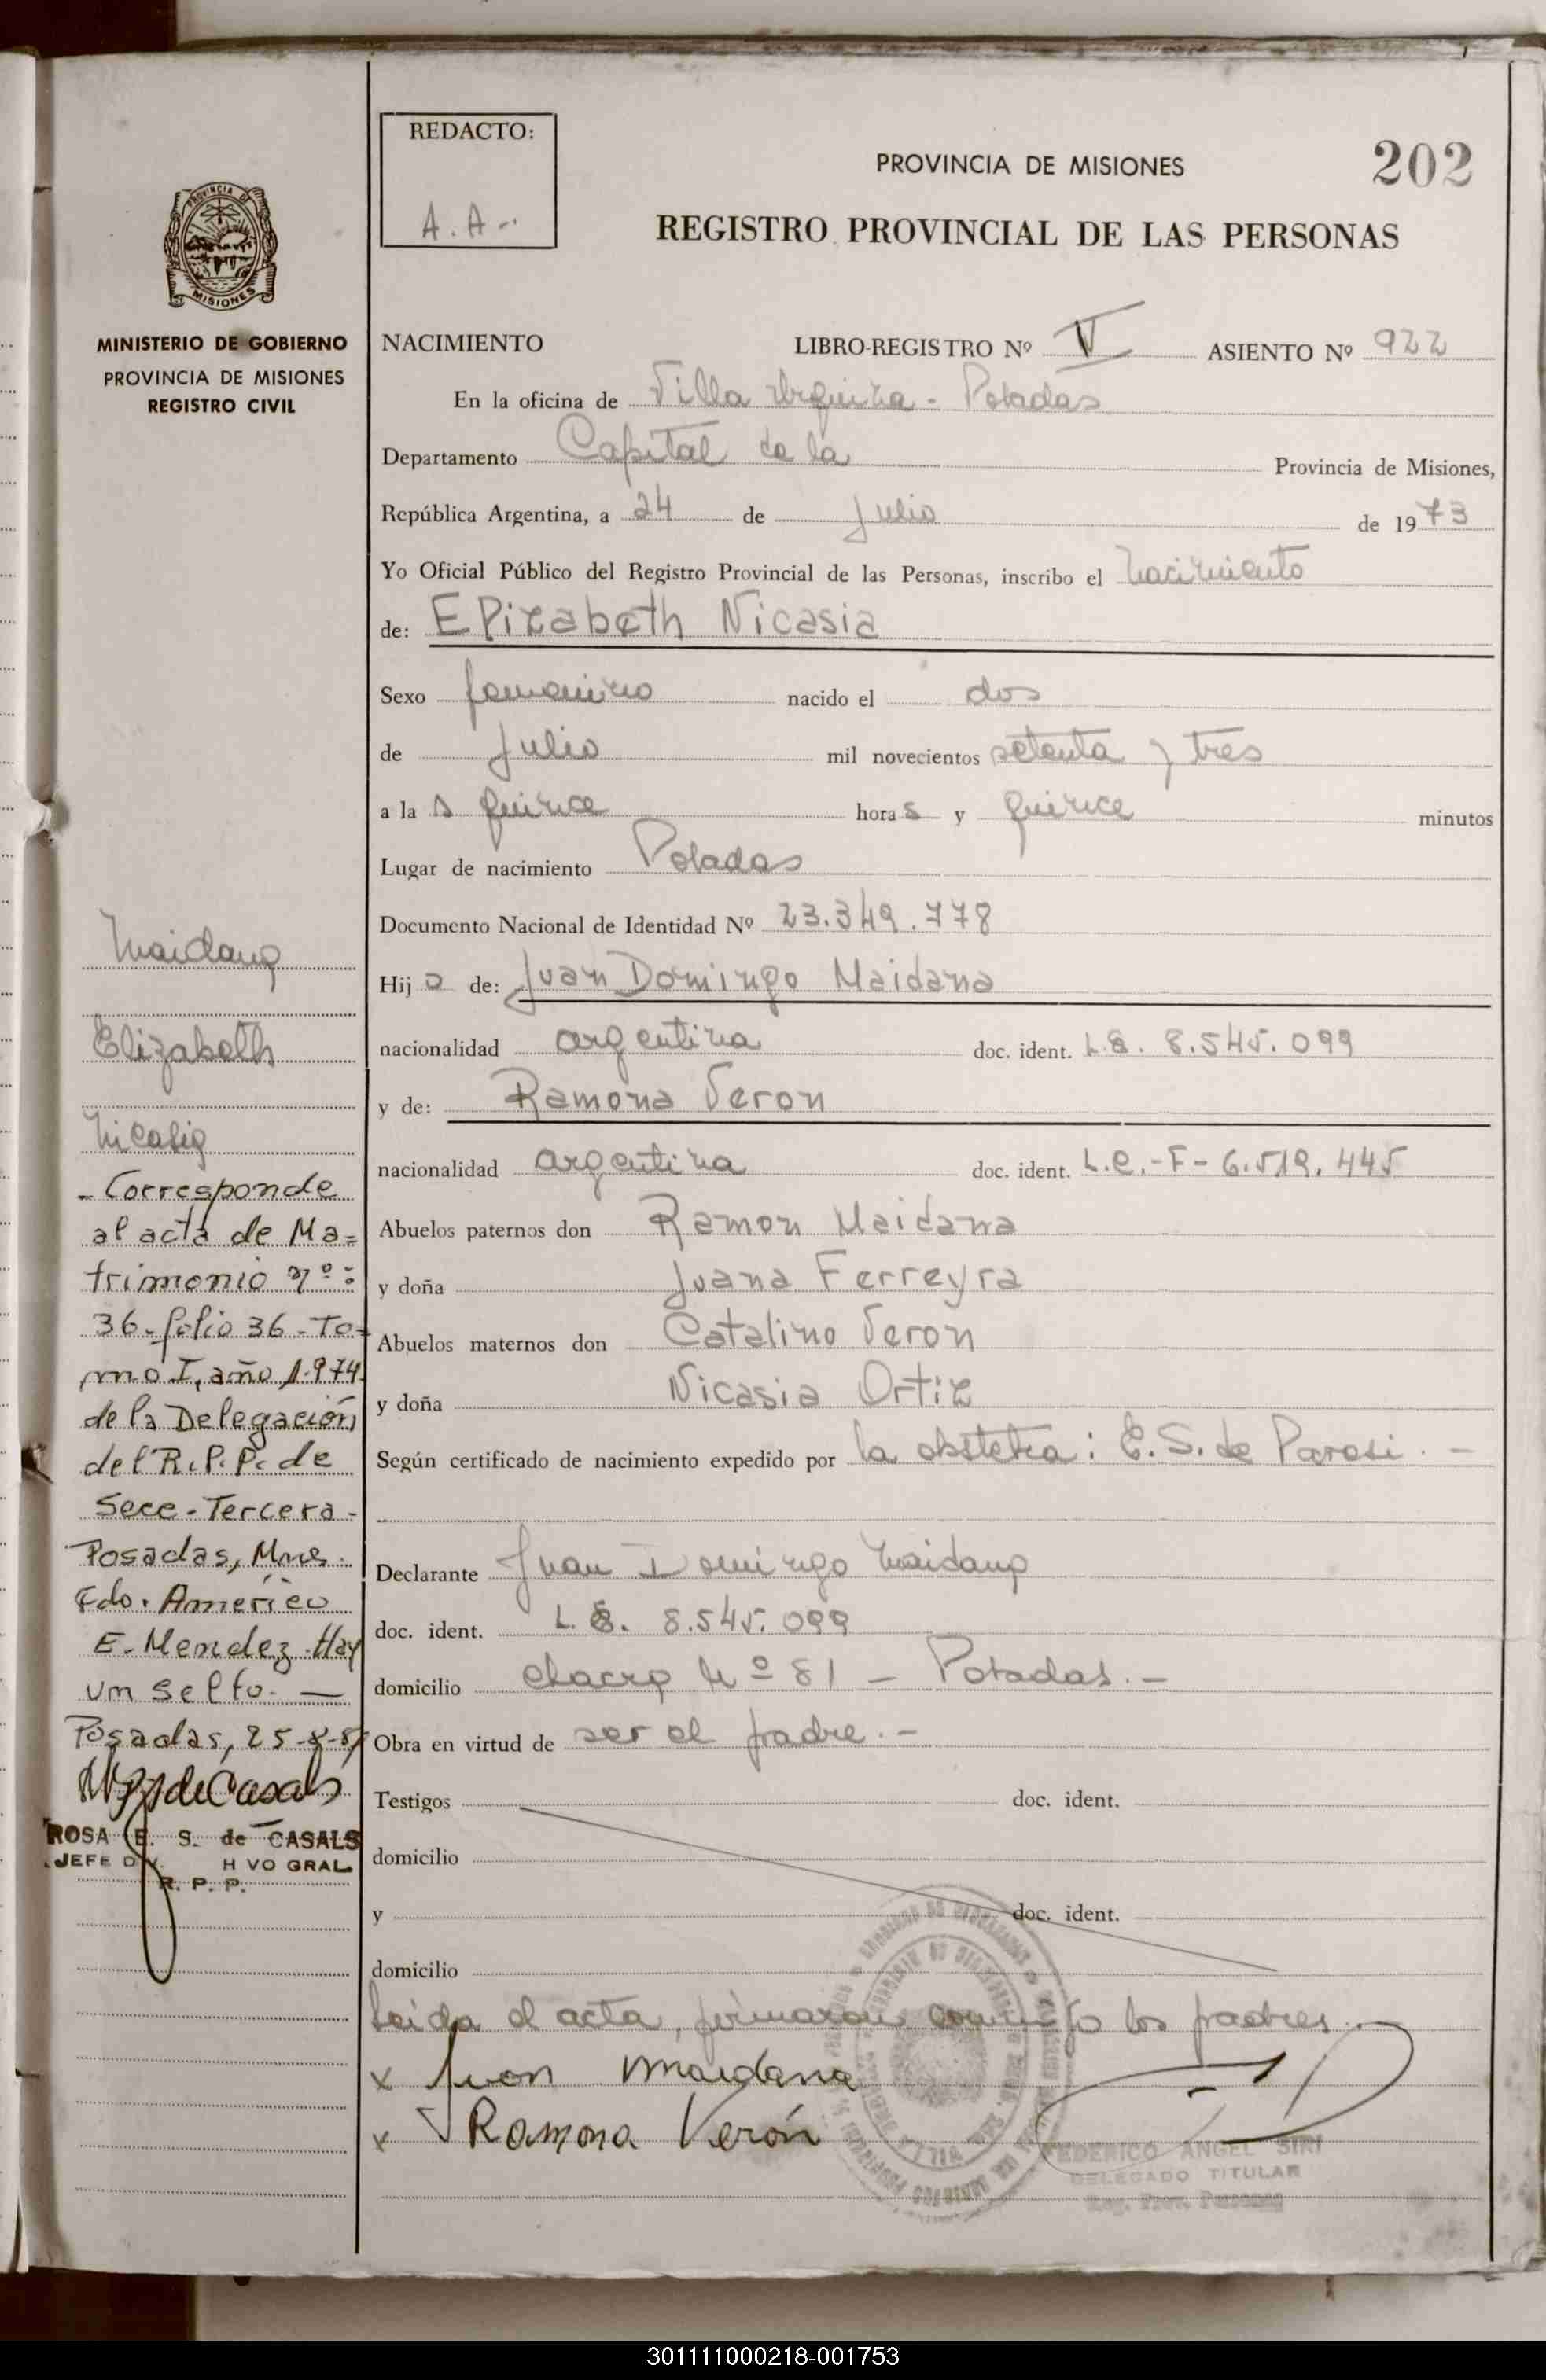 REDACTO:
A.A-.
PROVINCIA DE MISIONES
202
REGISTRO PROVINCIAL DE LAS PERSONAS
PROVINCIA DE
MISIONES
MINISTERIO DE GOBIERNO
PROVINCIA DE MISIONES
REGISTRO CIVIL
NACIMIENTO LIBRO-REGISTRO Nº V ASIENTO Nº 922
En la oficina de Villa Urquiza - Posadas
Departamento Capital de la Provincia de Misiones,
República Argentina, a 24 de Julio de 1973
Yo Oficial Público del Registro Provincial de las Personas, inscribo el nacimiento
de: Elizabeth Nicasia
Sexo femenino nacido el dos
de Julio mil novecientos setenta y tres
a la s quince hora s y quince minutos
Lugar de nacimiento Posadas
Documento Nacional de Identidad Nº 23.349.778
Hij a de: Juan Domingo Maidana
nacionalidad argentina doc. ident. L.E. 8.545.099
y de: Ramona Veron
nacionalidad argentina doc. ident. L.C.-F- 6.519.445
Abuelos paternos don Ramon Maidana
y doña Juana Ferreyra
Abuelos maternos don Catalino Veron
y doña Nicasia Ortiz
Según certificado de nacimiento expedido por la obstetra: E.S. de Parosi. -
Declarante Juan Domingo Maidana
doc. ident. L.E. 8.545.099
domicilio chacra Nº 81 - Posadas. -
Obra en virtud de ser el padre. -
Testigos doc. ident.
domicilio
y doc. ident.
domicilio
Leida el acta, firmaron conmigo los padres.
x Juan Maidana
x Ramona Verón
FEDERICO ANGEL SIRI
DELEGADO TITULAR
Reg. Prov. Personas
Maidana
Elizabeth
Nicasia
- Corresponde
al acta de Ma=
trimonio nº:
36-folio 36-To-
mo I, año 1.974
de la Delegación
del R.P.P. de
Secc-Tercera-
Posadas, Mnes.
Fdo. Américo
E. Mendez-Hay
un sello. —
Posadas, 25-8-87
ROSA E. S. de CASALS
JEFE DIV. H VO GRAL.
R. P. P.
301111000218-001753